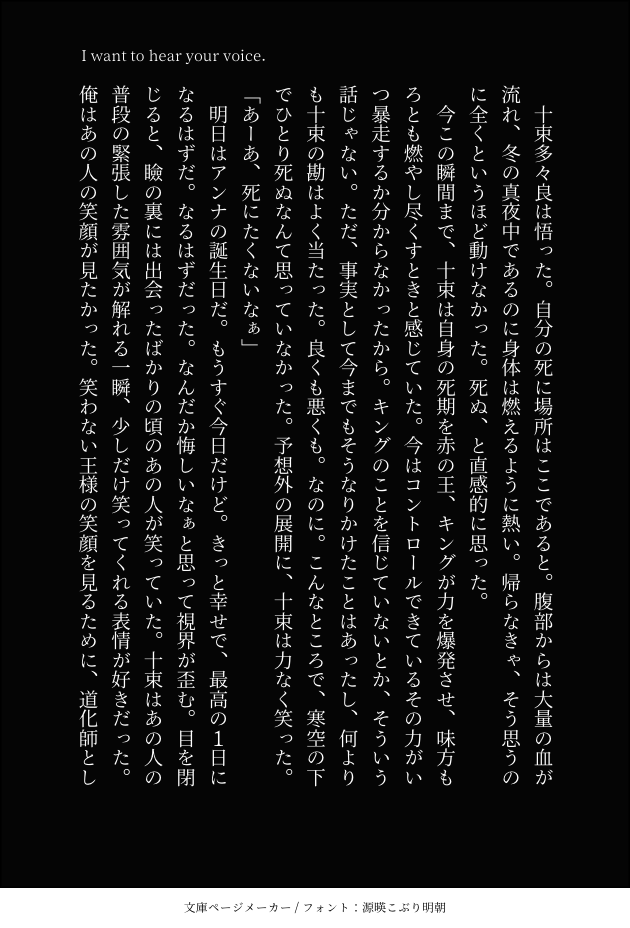 I want to hear your voice.
　十束多々良は悟った。自分の死に場所はここであると。腹部からは大量の血が
流れ、冬の真夜中であるのに身体は燃えるように熱い。帰らなきゃ、そう思うの
に全くというほど動けなかった。死ぬ、と直感的に思った。
　今この瞬間まで、十束は自身の死期を赤の王、キングが力を爆発させ、味方も
ろとも燃やし尽くすときと感じていた。今はコントロールできているその力がい
つ暴走するか分からなかったから。キングのことを信じていないとか、そういう
話じゃない。ただ、事実として今までもそうなりかけたことはあったし、何より
も十束の勘はよく当たった。良くも悪くも。なのに。こんなところで、寒空の下
でひとり死ぬなんて思っていなかった。予想外の展開に、十束は力なく笑った。
「あーあ、死にたくないなぁ」
　明日はアンナの誕生日だ。もうすぐ今日だけど。きっと幸せで、最高の１日に
なるはずだ。なるはずだった。なんだか悔しいなぁと思って視界が歪む。目を閉
じると、瞼の裏には出会ったばかりの頃のあの人が笑っていた。十束はあの人の
普段の緊張した雰囲気が解れる一瞬、少しだけ笑ってくれる表情が好きだった。
俺はあの人の笑顔が見たかった。笑わない王様の笑顔を見るために、道化師とし
文庫ページメーカー / フォント：源暎こぶり明朝